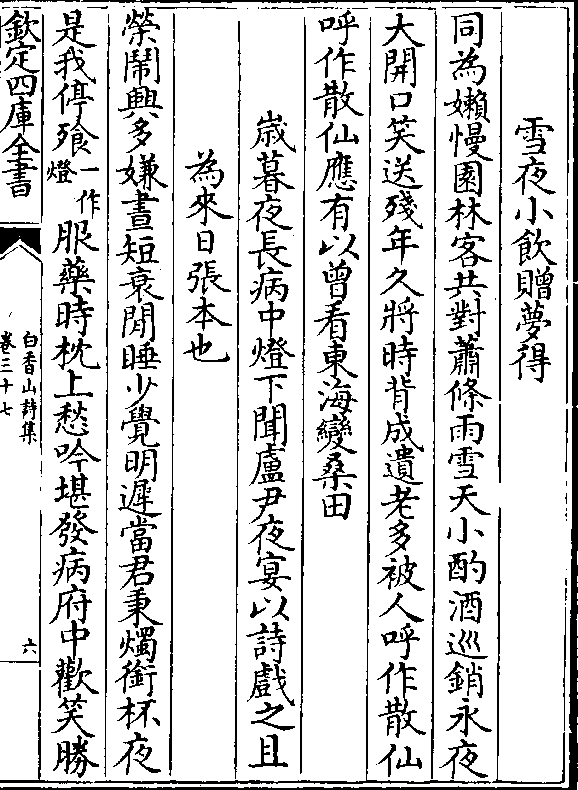 雪夜小飲贈夢得
同為嬾慢園林客共對蕭條雨雪天小酌酒巡銷永夜
大開口笑送殘年久將時背成遺老多被人呼作散仙
呼作散仙應有以曾看東海變桑田
歲暮夜長病中燈下聞盧尹夜宴以詩戲之且
為來日張本也
榮鬧興多嫌晝短衰閒睡少覺明遲當君秉燭銜杯夜
是我停飱一作燈服藥時枕上愁吟堪發病府中歡笑勝
欽定四庫全書
白香山詩集
卷三十七
六